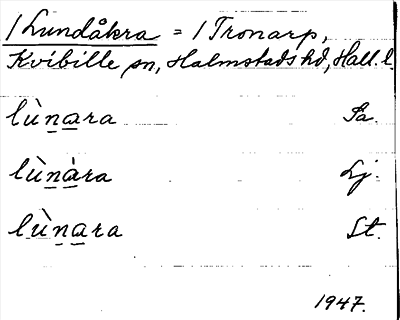 1 Lundåkra = 1 Tronarp,
Kvibille sn, Halmstads hd, Hall. l.
lùnara Sa.
lùnàra Lj.
lùnara St.
1947.